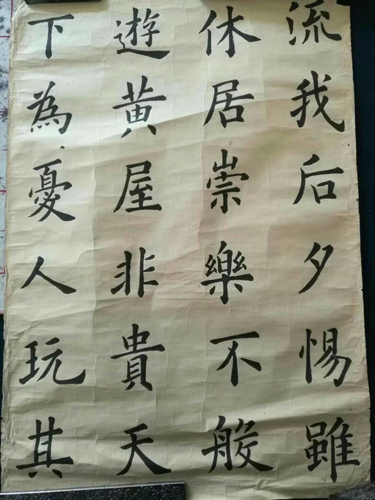 流我后夕惕雖
休居崇樂不般
遊黃屋非貴天
下為憂人玩其